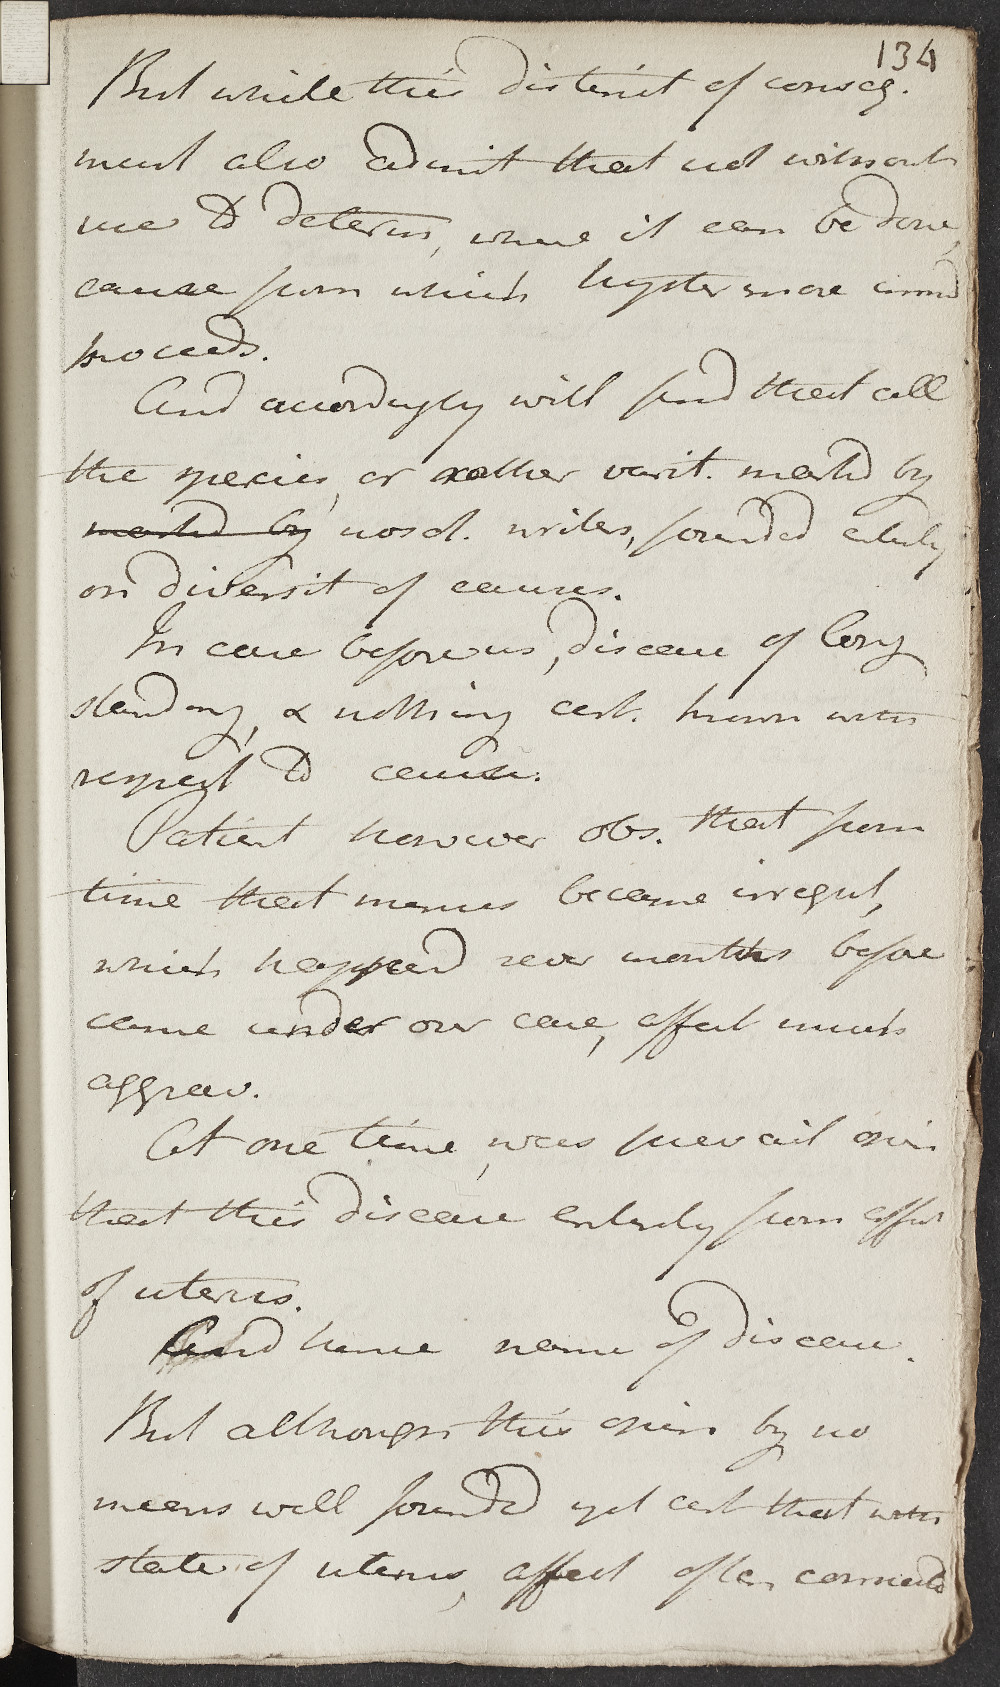 134
But while this distinct of conseq.
must also admit that not without
use to determ, where it can be done,
cause from which hyster more immed
proceeds.
And accordingly will find that all
the species, or rather varit. marked by
marked by nosol. writers, founded entirely
on diversit of causes.
In case before us, disease of long
standing, & nothing cert. known with
respect to cause.
Patient however obs. that from
time that menses became irregul,
which happened sever months before
came under our care, affect much
aggrav.
At one time, was prevail opin
that this disease entirely from affect
of uterus.
And hence name of disease.
But although this opin by no
means well founded yet cert that with
state of uterus, affect often connected